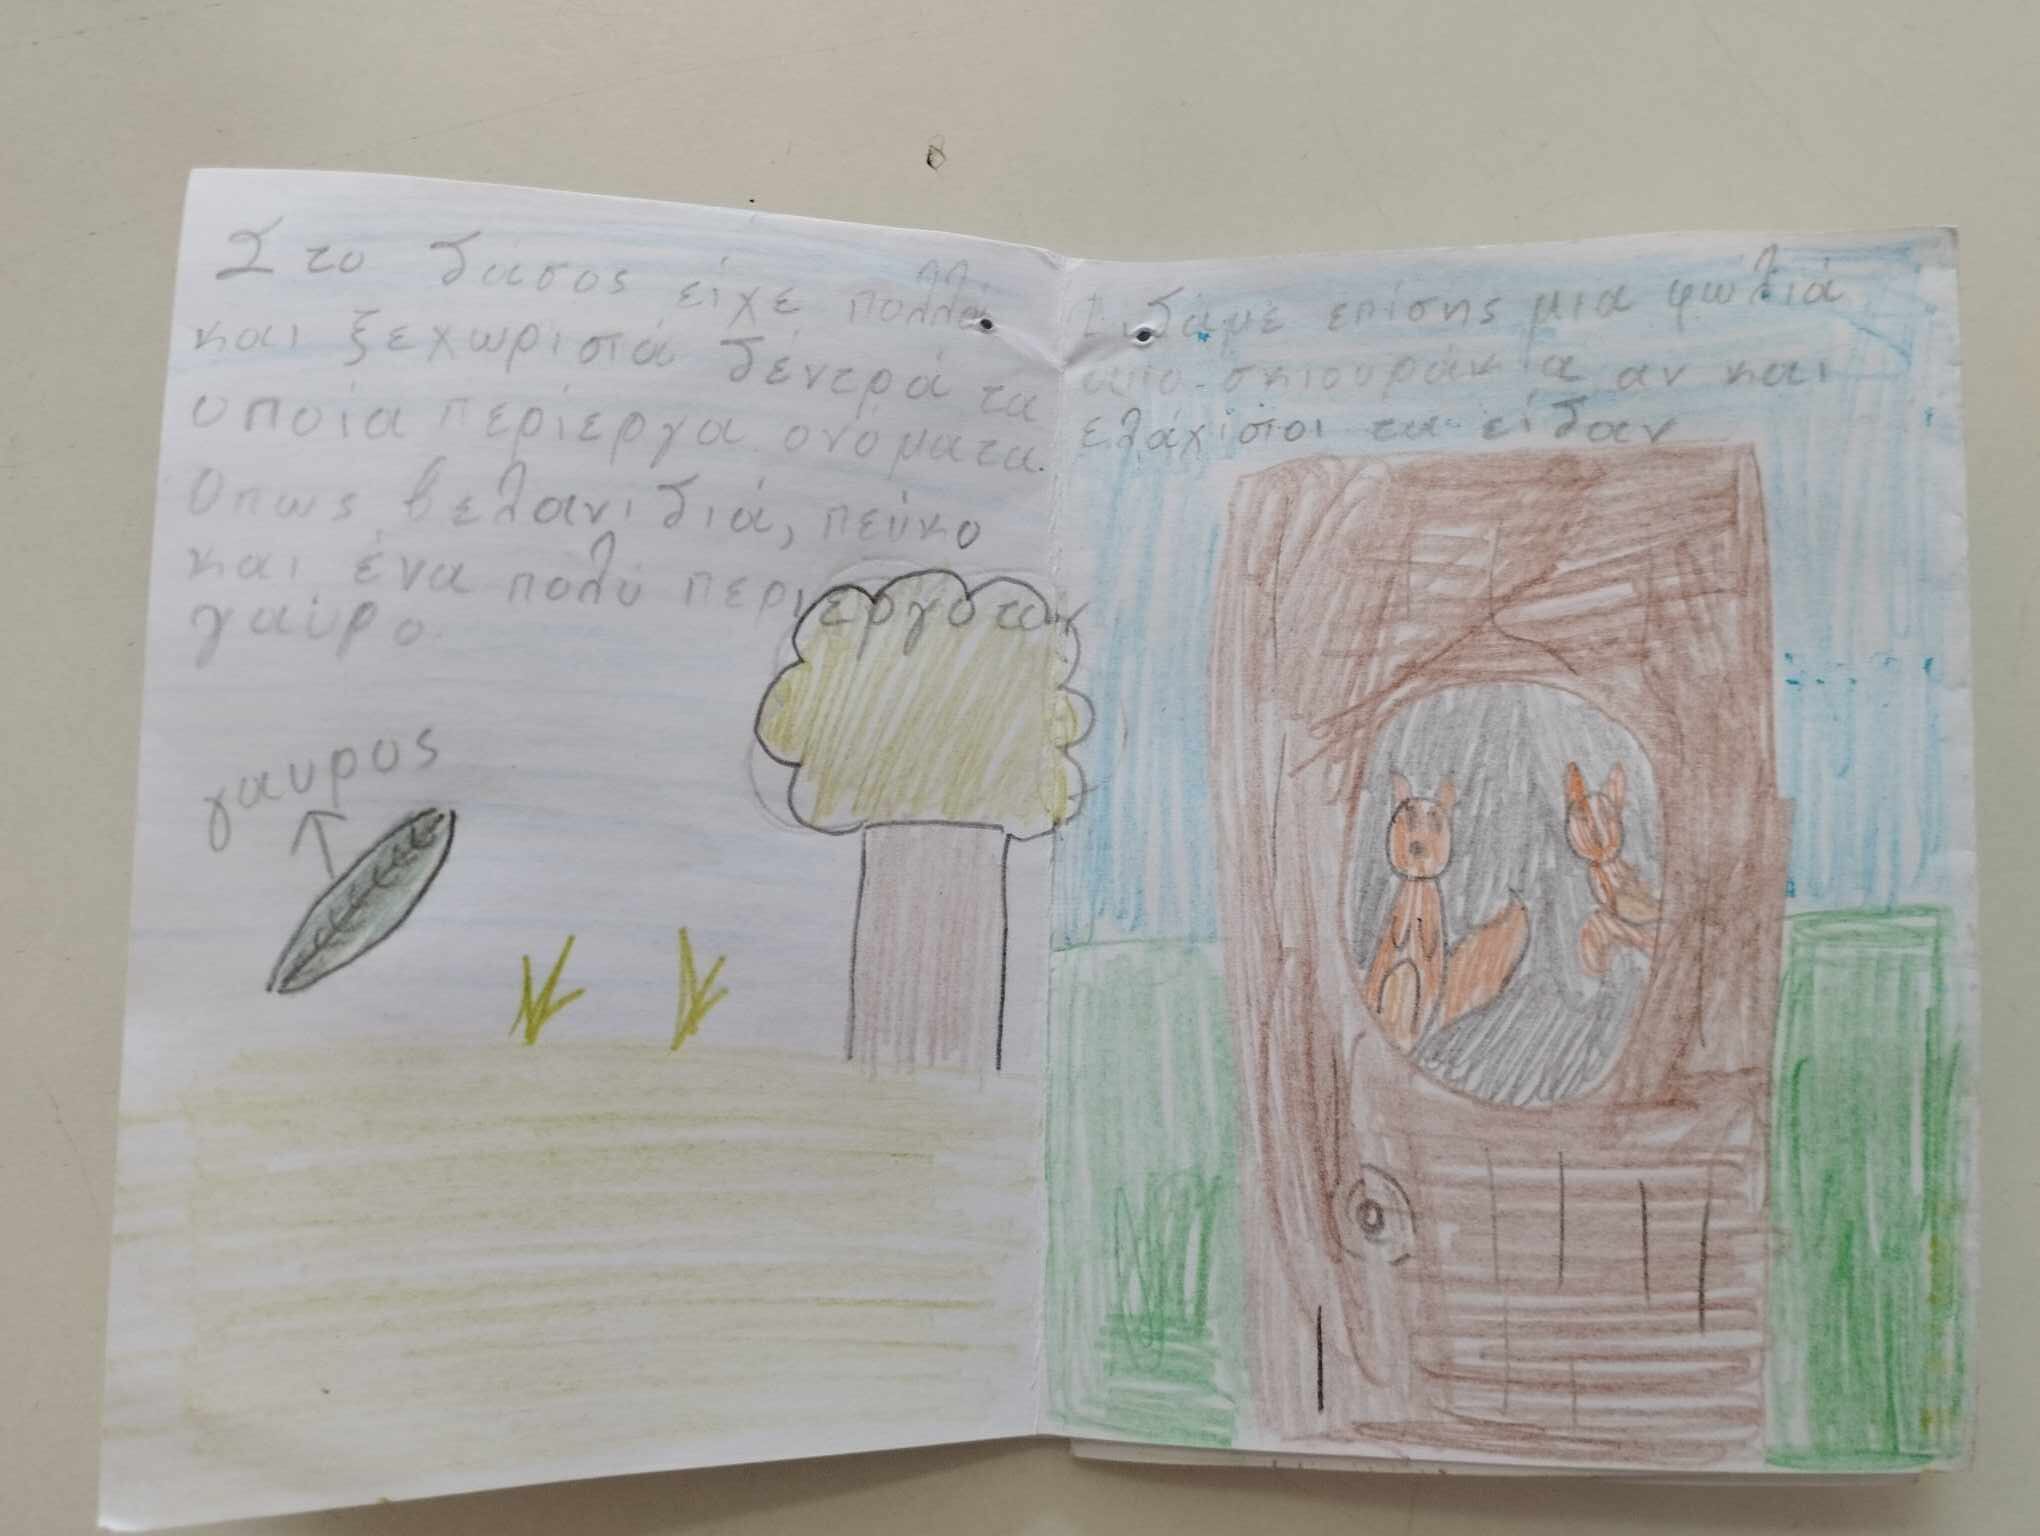 Στο δάσος είχε πολλά
και ξεχωριστά δέντρα τα
οποία περίεργα ονόματα.
Οπως βελανιδιά, πεύκο
και ένα πολύ περιεργόταν
γαύρο.
γαυρος
Ειδαμε επίσης μια φωλιά
απο σκιουράκια αν και
ελάχιστοι τα είδαν